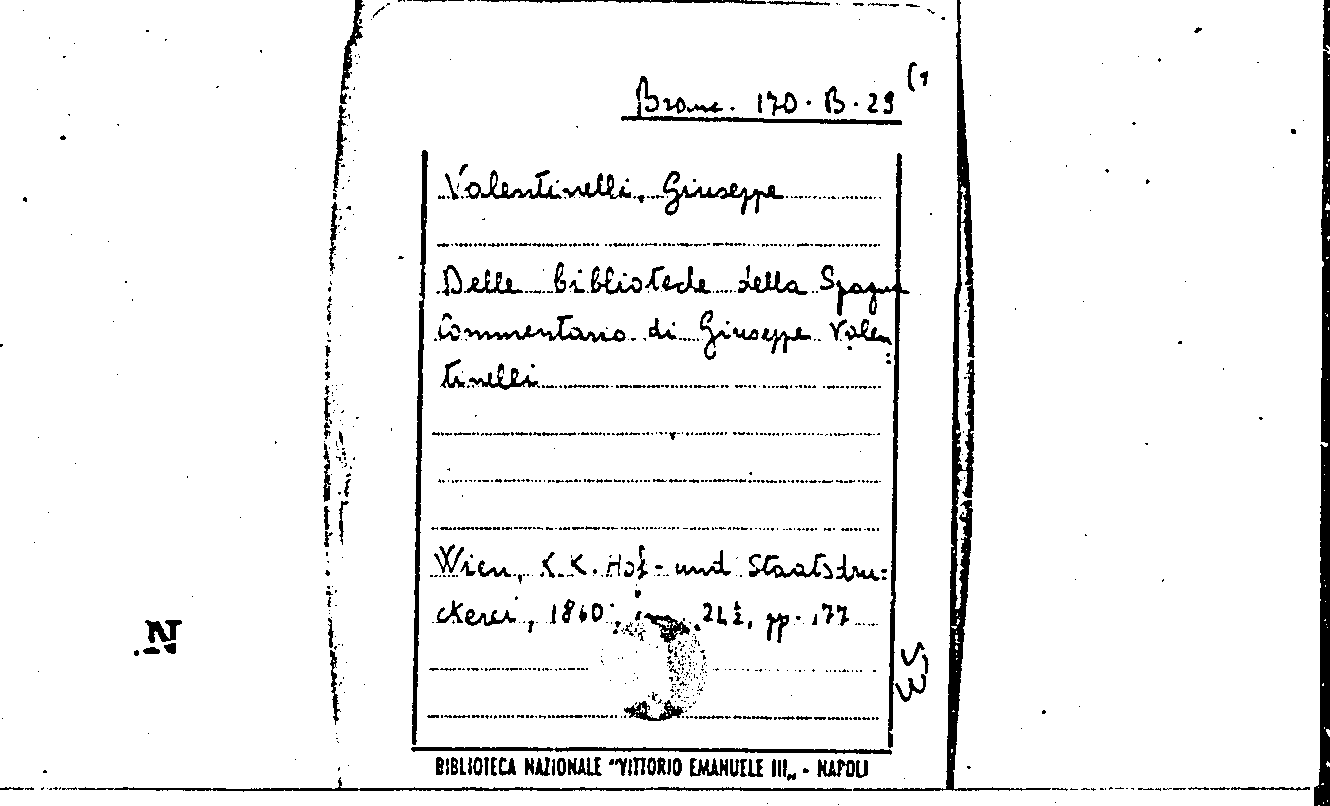 Branc. 170. B. 29 (1
Valentinelli, Giuseppe
Delle biblioteche della Spagna
Commentario di Giuseppe Valen
tinelli
Wien, K. K. Hof- und Staatsdru:
ckerei, 1860; in 24½, pp. 177
53
N.
BIBLIOTECA NAZIONALE "VITTORIO EMANUELE III„ - NAPOLI